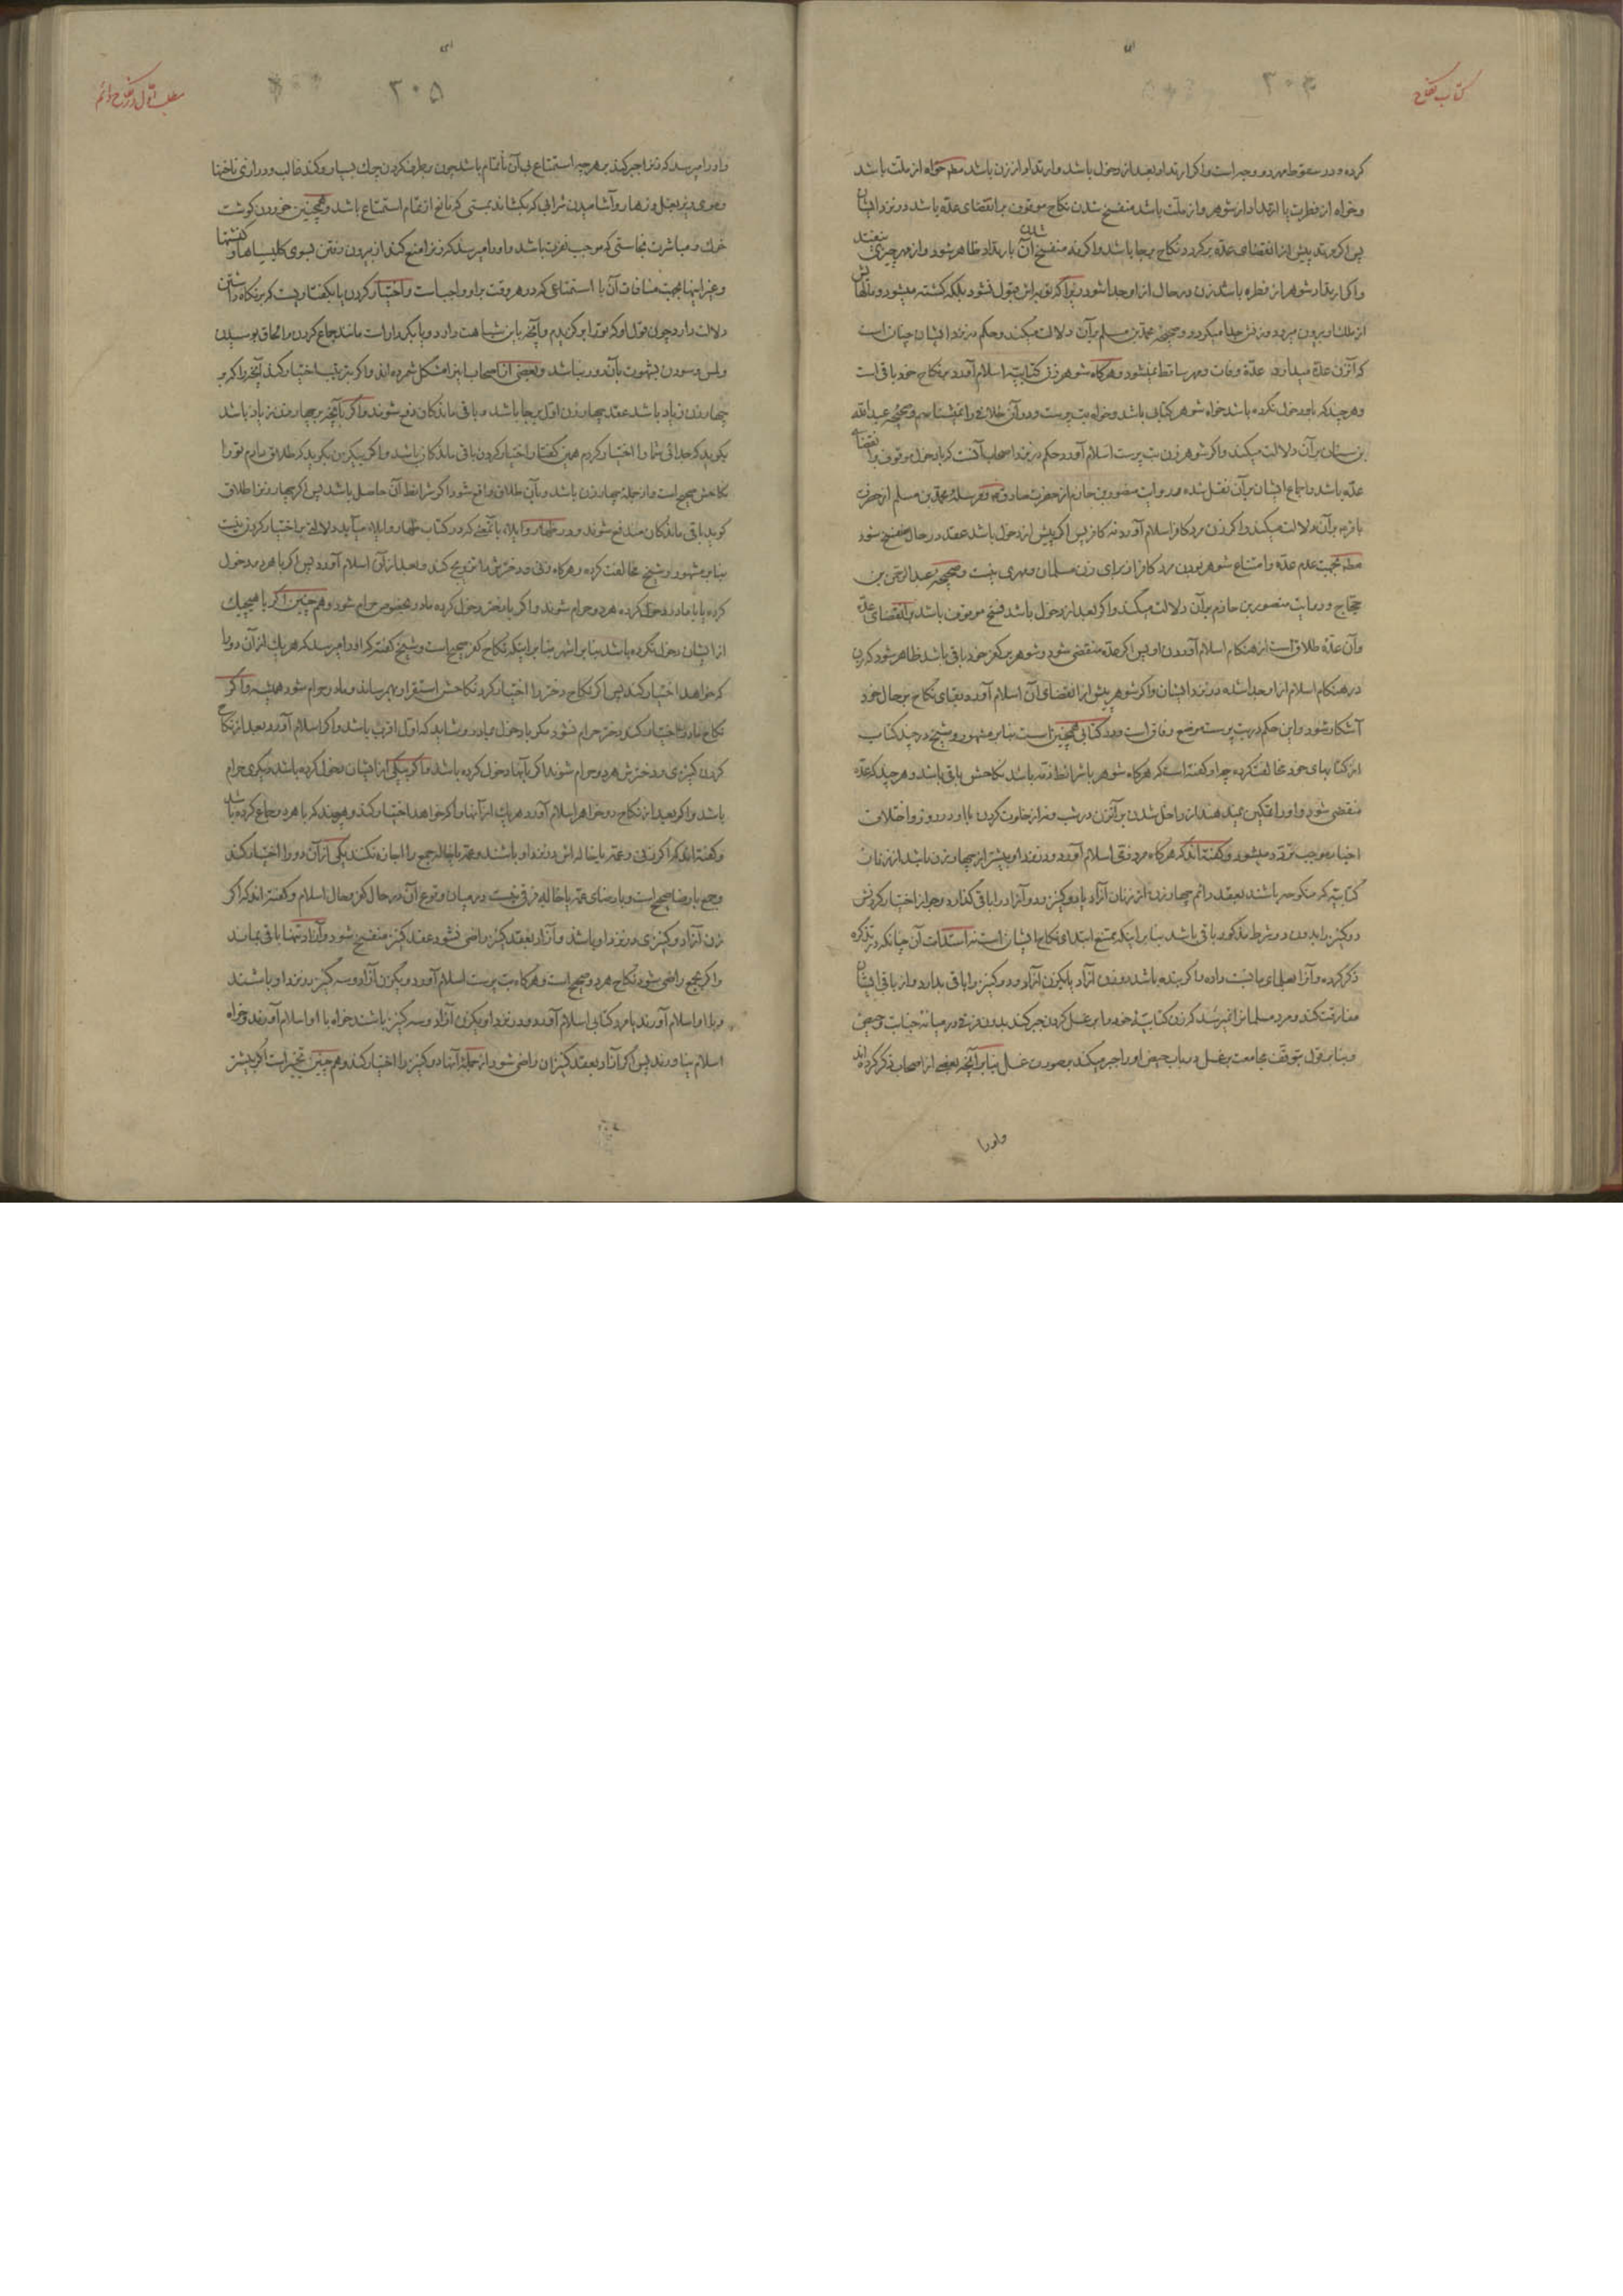 کتاب نکاح
۳۰۴
کرده و در سقوط مهر دو وجه است و اگر ارتداد بعد از دخول باشد و ارتداد از زن باشد مطلقا خواه از ملت باشد
و خواه از فطرت یا ارتداد از شوهر و از ملت باشد منفسخ شدن نکاح موقوف بر انقضای عده باشد در نزد ایشان
پس اگر مرتد پیش از انقضای عده برگردد نکاح برجا باشد و اگر نه منفسخ شدن آن بارتداد ظاهر شود و از مهر چیزی نیفتد
و اگر ارتداد شوهر از فطره باشد زن در حال از او جدا شود زیرا که توبه‌اش قبول نشود بلکه کشته میشود و مالهایش
از ملک او بیرون میرود و زنش جدا میگردد و صحیحه محمد بن مسلم بر آن دلالت میکند و حکم در نزد ایشان چنان است
که آن زن عده میدارد عده وفات و مهر ساقط نمیشود و هرگاه شوهر زن کتابیه اسلام آورد بر نکاح خود باقی است
و هر چند که باو دخول نکرده باشد خواه شوهر کتابی باشد و خواه بت پرست و در آن خلافی را نمیشناسیم و صحیحه عبد الله
بن سنان بر آن دلالت میکند و اگر شوهر زن بت پرست اسلام آورد حکم در نزد اصحاب آنست که با دخول موقوف بر انقضای
عده باشد و اجماع ایشان بر آن نقل شده و روایت منصور بن حازم از حضرت صادق و مرسله محمد بن مسلم از حضرت
باقر بر آن دلالت میکند و اگر زن مرد کافر اسلام آورد نه کافر پس اگر پیش از دخول باشد عقد در حال منفسخ شود
مطلقا بجهت عدم عده و امتناع شوهر بودن مرد کافر از برای زن مسلمان و مهری نیست و صحیحه عبد الرحمن بن
حجاج و روایت منصور بن حازم بر آن دلالت میکند و اگر بعد از دخول باشد فسخ موقوف باشد بر انقضای عده
و آن عده طلاق است از هنگام اسلام آوردن او پس اگر عده منقضی شود و شوهر بر کفر خود باقی باشد ظاهر شود که زن
در هنگام اسلام از او جدا شده در نزد ایشان و اگر شوهر پیش از انقضای آن اسلام آورد بقای نکاح بر حال خود
آشکار شود و این حکم در بت پرست موضع وفاق است و در کتابی همچنین است بنا بر مشهور و شیخ در چند کتاب
از کتابهای خود مخالفت کرده چه او گفته است که هرگاه شوهر با شرائط ذمه باشد نکاحش باقی باشد و هر چند که عده
منقضی شود و او را تمکین نمیدهند از داخل شدن بر آن زن در شب و نه از خلوت کردن با او در روز و اختلاف
اخبار موجب تردد میشود و گفته‌اند که هرگاه مرد ذمی اسلام آورد و در نزد او بیشتر از چهار زن باشد از زنان
کتابیه که منکوحه باشند بعقد دائم چهار زن از زنان آزاد یا دو کنیز و دو آزاد را باقی گذارد و جواز اختیار کردنش
دو کنیز را بدون دو شرط مذکور باقی باشد بنا بر اینکه ممتنع ابتدای نکاح ایشان است نه استدامت آن چنانکه در تذکره
ذکر کرده و آنرا بعلمای ما نسبت داده و اگر بنده باشد دو زن آزاد یا یک زن آزاد و دو کنیز را باقی بدارد و از باقی ایشان
مفارقت کند و مرد مسلمان را نمیرسد که زن کتابیه خود را بر غسل کردن جبر کند بدون فرق در میانه جنابت و حیض
و بنا بر قول بتوقف مجامعت بر غسل در باب حیض او را جبر میکند بر صورت غسل بنا بر آنچه بعضی از اصحاب ذکر کرده‌اند
و او را
مطلب اول در نکاح دائم
۳۰۵
و او را میرسد که زن را جبر کند بر هر چه استمتاع بی آن ناتمام باشد چون برطرف کردن چرک بسیار و گند غالب و درازی ناخنها
و موی زیر بغل و زهار و آشامیدن شرابی که بکشاند بمستی که مانع از تمام استمتاع باشد و همچنین خوردن گوشت
خوک و مباشرت نجاستی که موجب نفرت باشد و او را میرسد که زن را منع کند از بیرون رفتن بسوی کلیساها و کنشتها
و غیر اینها بجهت منافات آن با استمتاعی که در هر وقت بر او واجب است و اختیار کردن یا بگفتاریست که بر نگاه داشتن
دلالت دارد چون قول او که تو را برگزیدم و آنچه باین شباهت دارد و یا بکردار است مانند جماع کردن و الحاق بوسیدن
و لمس نمودن بشهوت بآن دور نباشد و بعضی از اصحاب این را مشکل شمرده‌اند و اگر بترتیب اختیار کند آنچه را که بر
چهار زن زیاد باشد عقد چهار زن اول برجا باشد و باقی ماندگان دفع شوند و اگر بآنچه بر چهار زن زیاد باشد
بگوید که جدائی شما را اختیار کردم همین گفتار اختیار کردن باقی ماندگان باشد و اگر بیکی زن بگوید که طلاق دادم تو را
نکاحش صحیح است و از جمله چهار زن باشد و بآن طلاق واقع شود اگر شرائط آن حاصل باشد پس اگر چهار زن را طلاق
گوید باقی ماندگان مندفع شوند و در ظهار و ایلاء بآنحوی که در کتاب ظهار و ایلاء میآید دلالتی بر اختیار کردن نیست
بنا بر مشهور و شیخ مخالفت کرده و هرگاه زنی و دخترش را تزویج کند و بعد از آن اسلام آورد پس اگر با هر دو دخول
کرده یا با مادر دخول کرده هر دو حرام شوند و اگر با دختر دخول کرده مادر بخصوص حرام شود و همچنین اگر با هیچیک
از ایشان دخول نکرده باشد بنا بر اشهر بنا بر اینکه نکاح کفر صحیح است و شیخ گفته که او را میرسد که هر یک از آن دو را
که خواهد اختیار کند پس اگر نکاح دختر را اختیار کرد نکاحش استقرار بهم رساند و مادر حرام شود همیشه و اگر
نکاح مادر را اختیار کند دختر حرام نشود مگر با دخول مادر و شاید که اول اقرب باشد و اگر اسلام آورد بعد از نکاح
کردن کنیزی و دخترش هر دو حرام شوند اگر بآنها دخول کرده باشد و اگر بیکی از ایشان دخول کرده باشد دیگری حرام
باشد و اگر بعد از نکاح دو خواهر اسلام آورد هر یک از آنها را که خواهد اختیار کند و هر چند که با هر دو جماع کرده باشد
و گفته‌اند که اگر زنی و عمه یا خاله‌اش در نزد او باشند و عمه یا خاله جمع را اجازه نکند یکی از آن دو را اختیار کند
و جمع با رضا صحیح است و با رضای عمه یا خاله فرقی نیست در میان وقوع آن در حال کفر و حال اسلام و گفته‌اند که اگر
زن آزاد و کنیزی در نزد او باشد و آزاد بعقد کنیز راضی نشود عقد کنیز منفسخ شود و آزاد تنها باقی بماند
و اگر بجمع راضی شود نکاح هر دو صحیح است و هرگاه بت پرست اسلام آورد و یک زن آزاد و سه کنیز در نزد او باشند
و با او اسلام آورند یا مرد کتابی اسلام آورد و در نزد او یک زن آزاد و سه کنیز باشند خواه با او اسلام آورند و خواه
اسلام نیاورند پس اگر آزاد بعقد کنیزان راضی شود از جمله آنها دو کنیز را اختیار کند و همچنین تخییر است اگر بیشتر